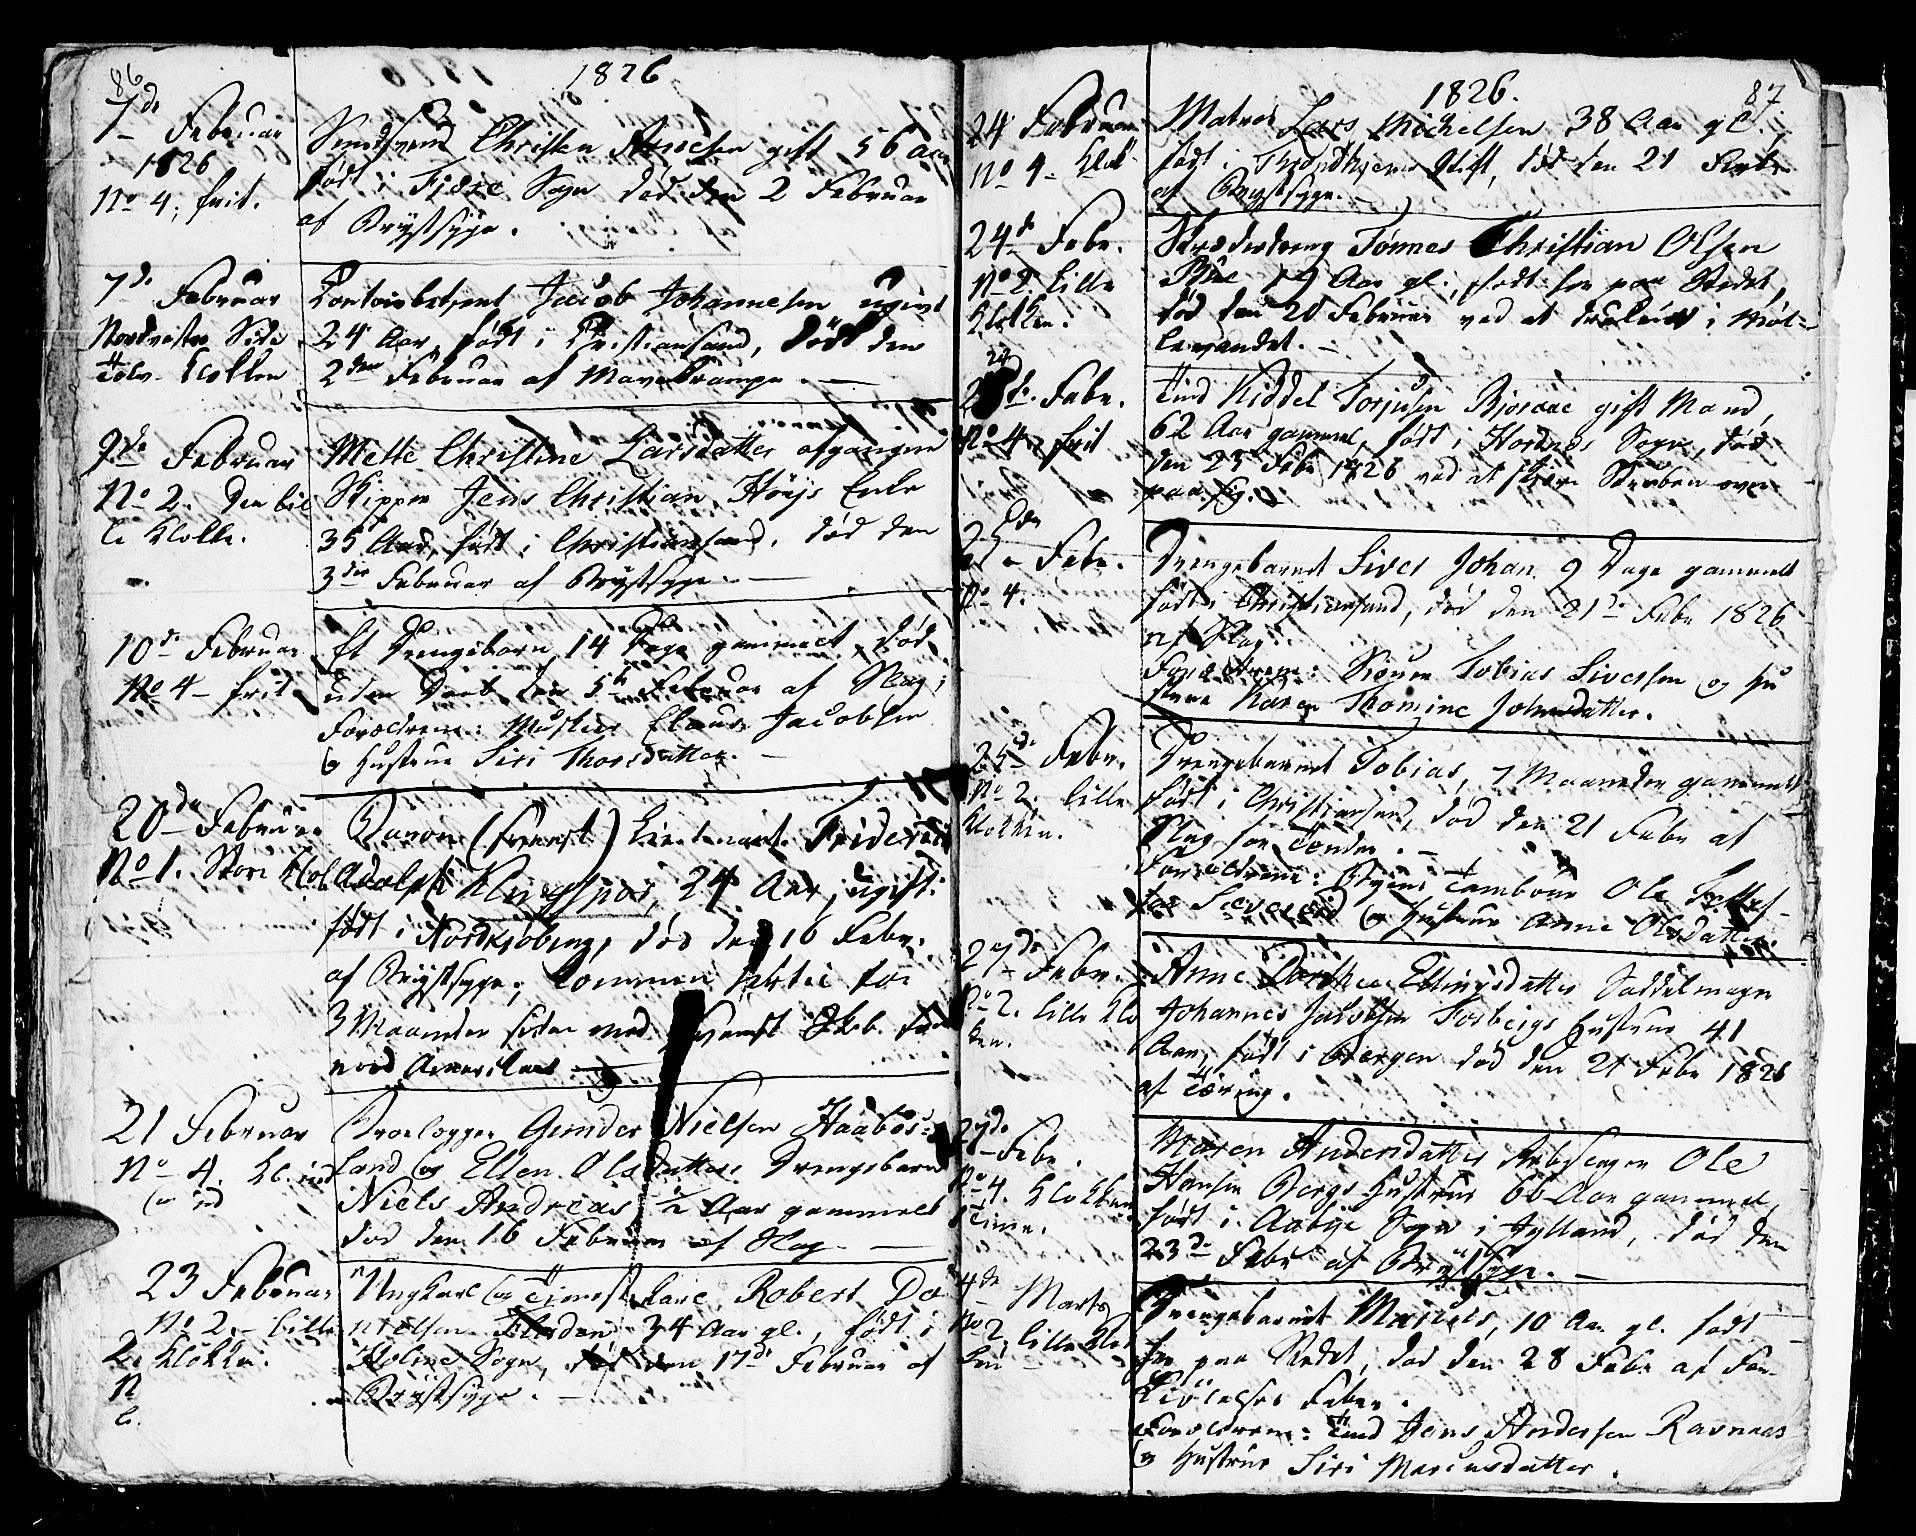 86
1826
7de Februar
1826
No 4. frit.
Christen gift 56 Aar
født i Fjære Sogn død den 2 Februar
af Brystsyge.
7de Februar
Nordvestre Side
Tolv Klokken
Contoirbetjent Jacob Johannesen ugivt
24 Aar, født i Christiansand, død den
2den Februar af Mavekrampe.
9de Februar
No 2. den lil
le Klokke.
Mette Christine Larsdatter afgangne
Skipper Jens Christian Höijs Enke
35 Aar, født i Christiansand, død den
3die Februar af Brystsyge.
10de Februar
No 4 - frit
Et Drengebarn 14 Dage gammelt, død
uden Daab den 5te Februar af Slag;
Forældrene: Claus Jacobsen
og Hustrue Siri Thorsdatter.
20de Februar
No 1. Store Klok
Baron (svensk) Lieutenant Friderich
Adolph Klingspor, 24 Aar, ugift:
født i Nordkjøbing, død den 16 Febr.
af Brystsyge; kommen hertil for
3 Maaneder siden med svensk Skib fra
nord America
21 Februar
No 4. Kl. ind
og ud
Brolegger Gunder Nielsen Haabes-
land og Ellen Olsdatters Drengebarn
Niels Andreas, 1/2 Aar gammelt
død den 16 Februar af Slag
23 Februar
No 2 - lille
Klokke.
Ungkarl og Robert Da
nielsen 34 Aar gl., født i
Holme Sogn, død den 17de Februar af
Brystsyge.
1826.
87
24 Februar
No 4 - Klok
Matros Lars Michelsen 38 Aar gl.
født i Throndhjems Stift, død den 21 Febr
af Brystsyge.
24de Febr.
No 2. lille
Klokken.
Skræderdreng Tønnes Christian Olsen
19 Aar gl., født her paa Stedet,
død den 20 Februar ved at drukne i Møl-
levandet.
24
de. Febr.
No 4, frit
Tind Kiddel Torjusen gift Mand,
62 Aar gammel, født i Sogn, død
den 23 Febr 1826 ved at skjære Struben over
paa sig.
Febr.
No 4.
Drengebarnet Siver Johan 9 Dage gammelt
født i Christiansand, død den 21de Febr 1826
af Slag.
Forældrene: Tobias Siversen og Hu
strue Karen Thomine Johnsdatter.
25de Febr.
No 2. lille
Klokken.
Drengebarnet Tobias, 7 Maaneder gammelt
født i Christiansand, død den 21 Febr af
Slag for Tænder.
Forældrene: Byens Tambour Ole
og Hustrue Anne Olsdatter.
27de Febr.
No 2. lille Klo
ken.
Anne Dorthea Ellingsdatter Saddelmager
Johannes Jacobsen Forbergs Hustrue 41
Aar, født i Bergen død den 21 Febr 1826
af Tæring.
27de Febr.
No 4. Klokken
Maren Andersdatter Ole
Hansen Bergs Hustrue 66 Aar gammel,
født i Aabye Sogn i Jylland, død den
23de Febr af Brystsyge.
4de Marts
No 2 lille Klok
ken
Drengebarnet Marcus, 10 Aar gl. født
her paa Stedet, død den 28 Febr af For
kiølelses Feber.
Forældrene: Tind Jens Andersen Ravnaas
og Hustrue Siri Marcusdatter.